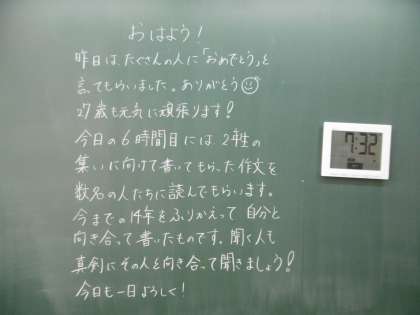 おはよう!
昨日は、たくさんの人に「おめでとう」と
言てもらいました。ありがとう
27歳も元気に頑張ります!
今日の6時間目には、2年生の
集いに向けて書いてもらった作文を
数名の人たちに読んでもらいます。
今までの14年をふりかえって自分と
向き合って書いたものです。聞く人も
真剣にその人と向き合って聞きましょう!
今日も一日よろしく!
7:32